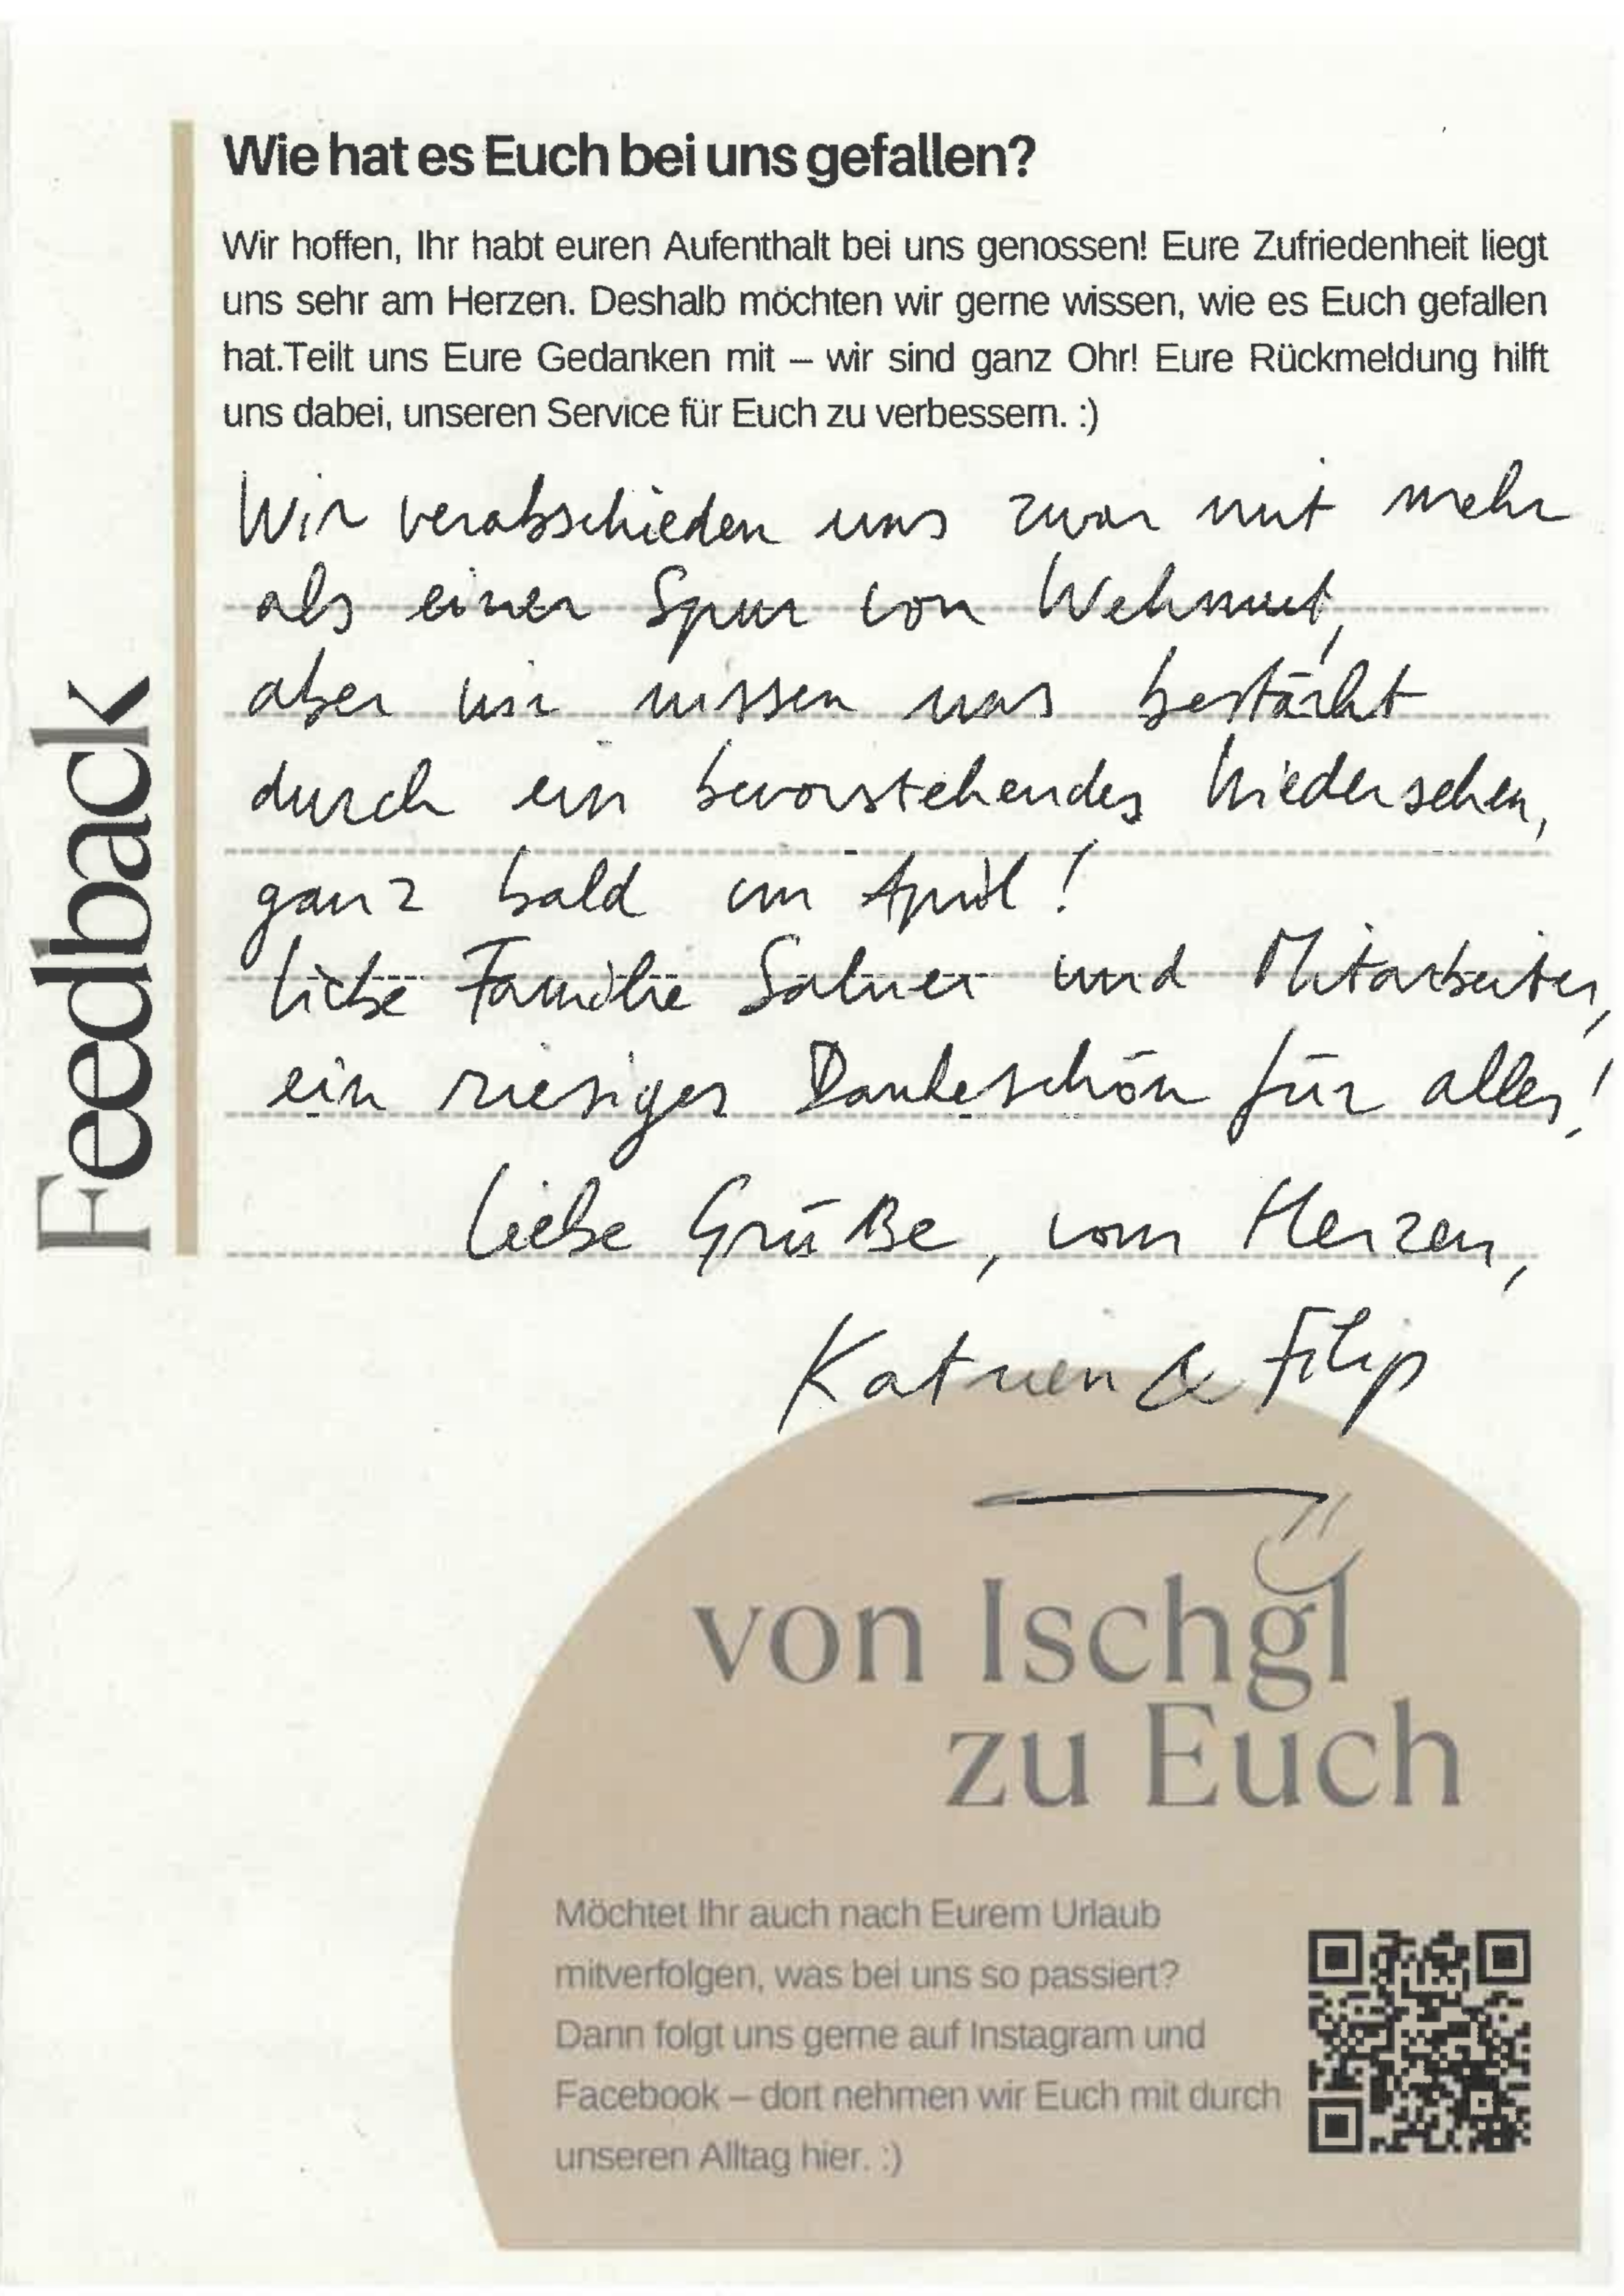 Wie hat es Euch bei uns gefallen?
Wir hoffen, Ihr habt euren Aufenthalt bei uns genossen! Eure Zufriedenheit liegt
uns sehr am Herzen. Deshalb möchten wir gerne wissen, wie es Euch gefallen
hat.Teilt uns Eure Gedanken mit – wir sind ganz Ohr! Eure Rückmeldung hilft
uns dabei, unseren Service für Euch zu verbessern. :)
Feedback
Wir verabschieden uns zwar mit mehr
als einer Spur von Wehmut,
aber wir wissen uns bestärkt
durch ein bevorstehendes Wiedersehen,
ganz bald im April!
Liebe Familie Salner und Mitarbeiter,
ein riesiges Dankeschön für alles!
Liebe Grüße, vom Herzen,
Katrien & Filip
von Ischgl
zu Euch
Möchtet Ihr auch nach Eurem Urlaub
mitverfolgen, was bei uns so passiert?
Dann folgt uns gerne auf Instagram und
Facebook – dort nehmen wir Euch mit durch
unseren Alltag hier. :)